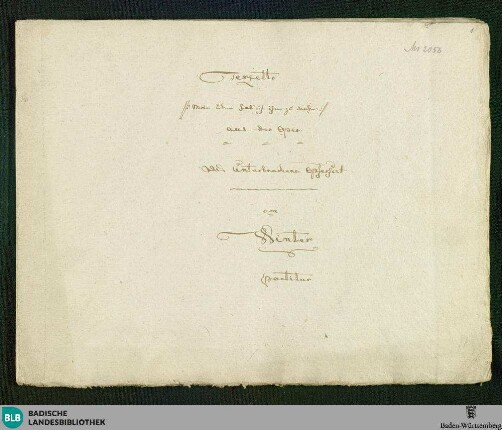 Mus 2083
Terzetto
aus der Oper
Das Unterbrochene Opferfest
von
Winter
partitur
BLB
BADISCHE
LANDESBIBLIOTHEK
Baden-Württemberg